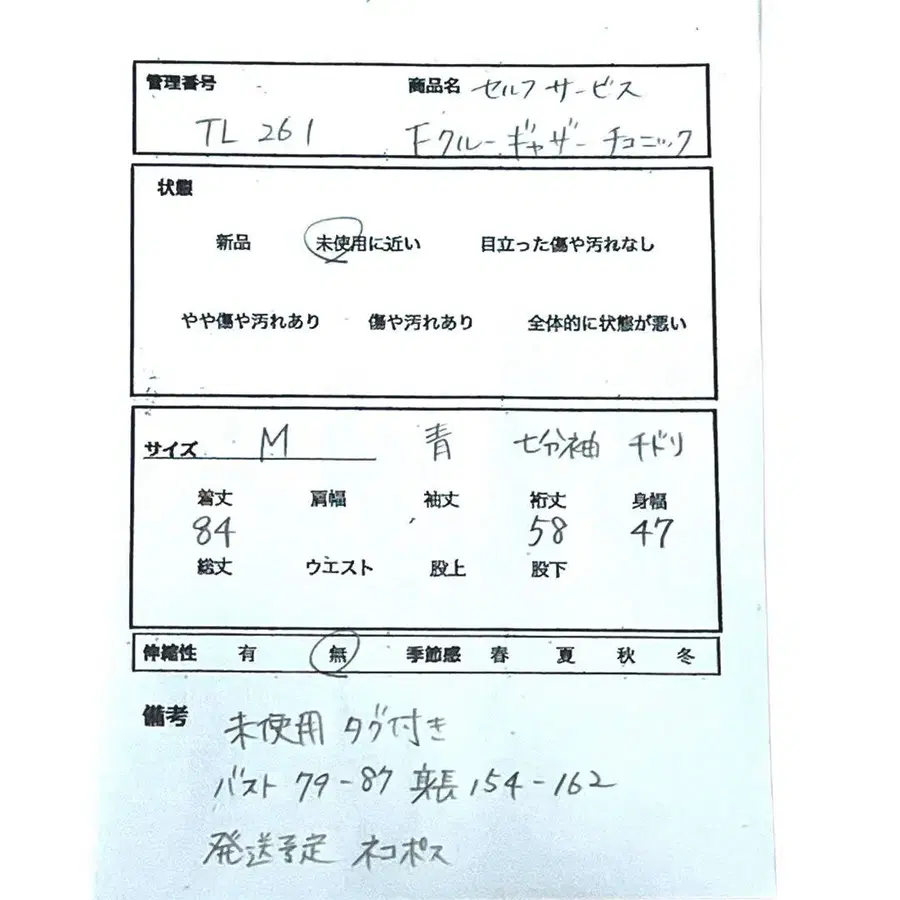 管理番号 商品名 セルフサービス
TL 261 Fクルーギャザーチュニック
状態
新品 未使用に近い 目立った傷や汚れなし
やや傷や汚れあり 傷や汚れあり 全体的に状態が悪い
サイズ M 青 七分袖 チドリ
着丈 肩幅 袖丈 裄丈 身幅
84 58 47
総丈 ウエスト 股上 股下
伸縮性 有 無 季節感 春 夏 秋 冬
備考 未使用 タグ付き
バスト 79-87 身長 154-162
発送予定 ネコポス